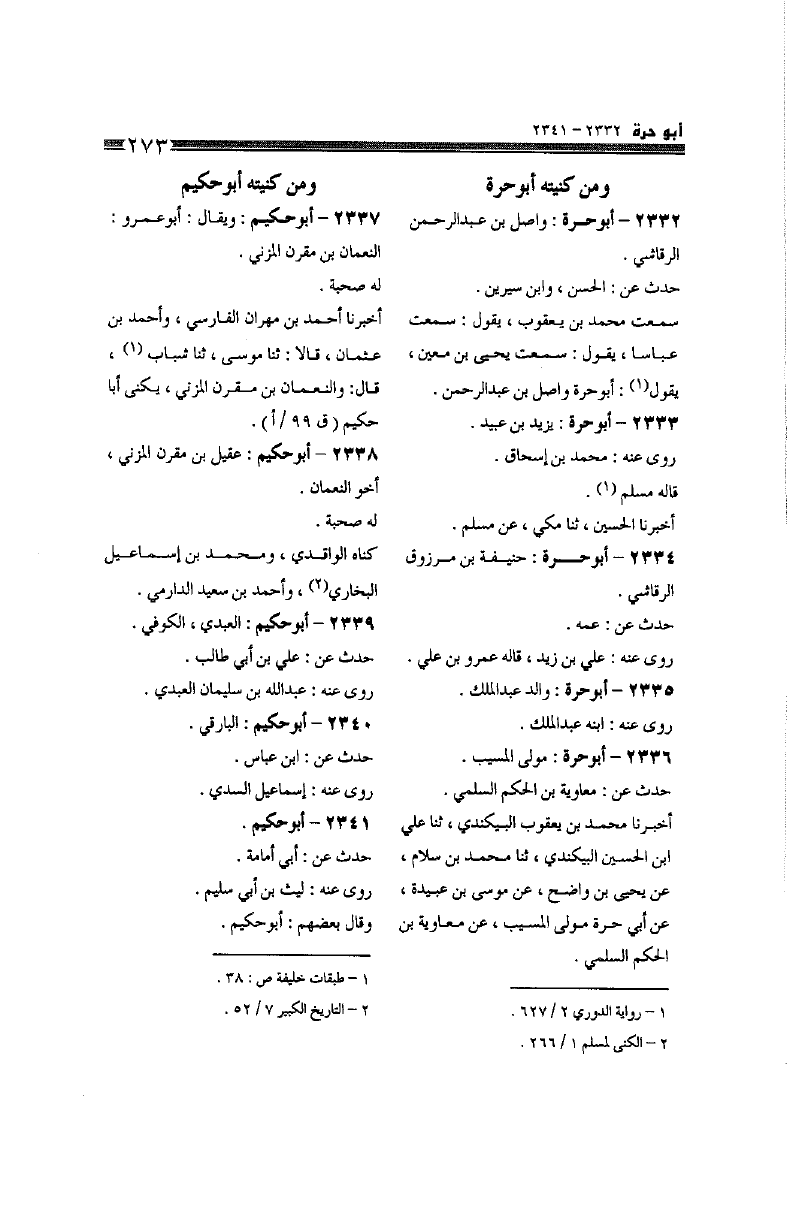 أبو حرة ٢٣٣٢ – ٢٣٤١
٢٧٣
ومن كنيته أبوحرة
٢٣٣٢ – أبوحرة : واصل بن عبدالرحمن
الرقاشي .
حدث عن : الحسن ، وابن سيرين .
سمعت محمد بن يعقوب ، يقول : سمعت
عباسا ، يقول : سمعت يحيى بن معين ،
يقول(١) : أبوحرة واصل بن عبدالرحمن .
٢٣٣٣ – أبوحرة : يزيد بن عبيد .
روى عنه : محمد بن إسحاق .
قاله مسلم (١) .
أخبرنا الحسين ، ثنا مكي ، عن مسلم .
٢٣٣٤ – أبوحرة : حنيفة بن مرزوق
الرقاشي .
حدث عن : عمه .
روى عنه : علي بن زيد ، قاله عمرو بن علي .
٢٣٣٥ – أبوحرة : والد عبدالملك .
روى عنه : ابنه عبدالملك .
٢٣٣٦ – أبوحرة : مولى المسيب .
حدث عن : معاوية بن الحكم السلمي .
أخبرنا محمد بن يعقوب البيكندي ، ثنا علي
ابن الحسين البيكندي ، ثنا محمد بن سلام ،
عن يحيى بن واضح ، عن موسى بن عبيدة ،
عن أبي حرة مولى المسيب ، عن معاوية بن
الحكم السلمي .
١ – رواية الدوري ٢ / ٦٢٧ .
٢ – الكنى لمسلم ١ / ٢٦٦ .
ومن كنيته أبوحكيم
٢٣٣٧ – أبوحكيم : ويقال : أبوعمرو :
النعمان بن مقرن المزني .
له صحبة .
أخبرنا أحمد بن مهران الفارسي ، وأحمد بن
عثمان ، قالا : ثنا موسى ، ثنا شباب (١) ،
قال: والنعمان بن مقرن المزني ، يكنى أبا
حكيم ( ق ٩٩ / أ ) .
٢٣٣٨ – أبوحكيم : عقيل بن مقرن المزني ،
أخو النعمان .
له صحبة .
كناه الواقدي ، ومحمد بن إسماعيل
البخاري(٢) ، وأحمد بن سعيد الدارمي .
٢٣٣٩ – أبوحكيم : العبدي ، الكوفي .
حدث عن : علي بن أبي طالب .
روى عنه : عبدالله بن سليمان العبدي .
٢٣٤٠ – أبوحكيم : البارقي .
حدث عن : ابن عباس .
روى عنه : إسماعيل السدي .
٢٣٤١ – أبوحكيم .
حدث عن : أبي أمامة .
روى عنه : ليث بن أبي سليم .
وقال بعضهم : أبوحكيم .
١ – طبقات خليفة ص : ٣٨ .
٢ – التاريخ الكبير ٧ / ٥٢ .